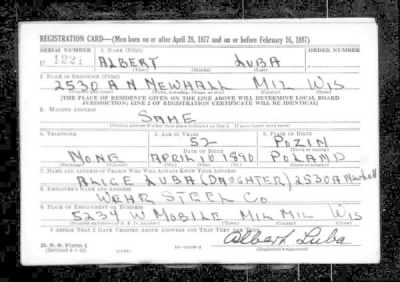 REGISTRATION CARD—(Men born on or after April 28, 1877 and on or before February 16, 1897)
SERIAL NUMBER 1. NAME (Print) ORDER NUMBER
U 1221 ALBERT LUBA
(First) (Middle) (Last)
2. PLACE OF RESIDENCE (Print)
2530 A N NEWHALL MIL WIS
[THE PLACE OF RESIDENCE GIVEN ON THE LINE ABOVE WILL DETERMINE LOCAL BOARD
JURISDICTION; LINE 2 OF REGISTRATION CERTIFICATE WILL BE IDENTICAL]
3. MAILING ADDRESS
SAME
4. TELEPHONE 5. AGE IN YEARS 6. PLACE OF BIRTH
52 POZIN
DATE OF BIRTH
NONE APRIL 10 1890 POLAND
7. NAME AND ADDRESS OF PERSON WHO WILL ALWAYS KNOW YOUR ADDRESS
ALICE LUBA (DAUGHTER) 2530A Newhall
8. EMPLOYER'S NAME AND ADDRESS
WEHR STEEL CO
9. PLACE OF EMPLOYMENT OR BUSINESS
5234 W MOBILE MIL MIL WIS
I AFFIRM THAT I HAVE VERIFIED ABOVE ANSWERS AND THAT THEY ARE TRUE.
D. S. S. Form 1
Albert Luba